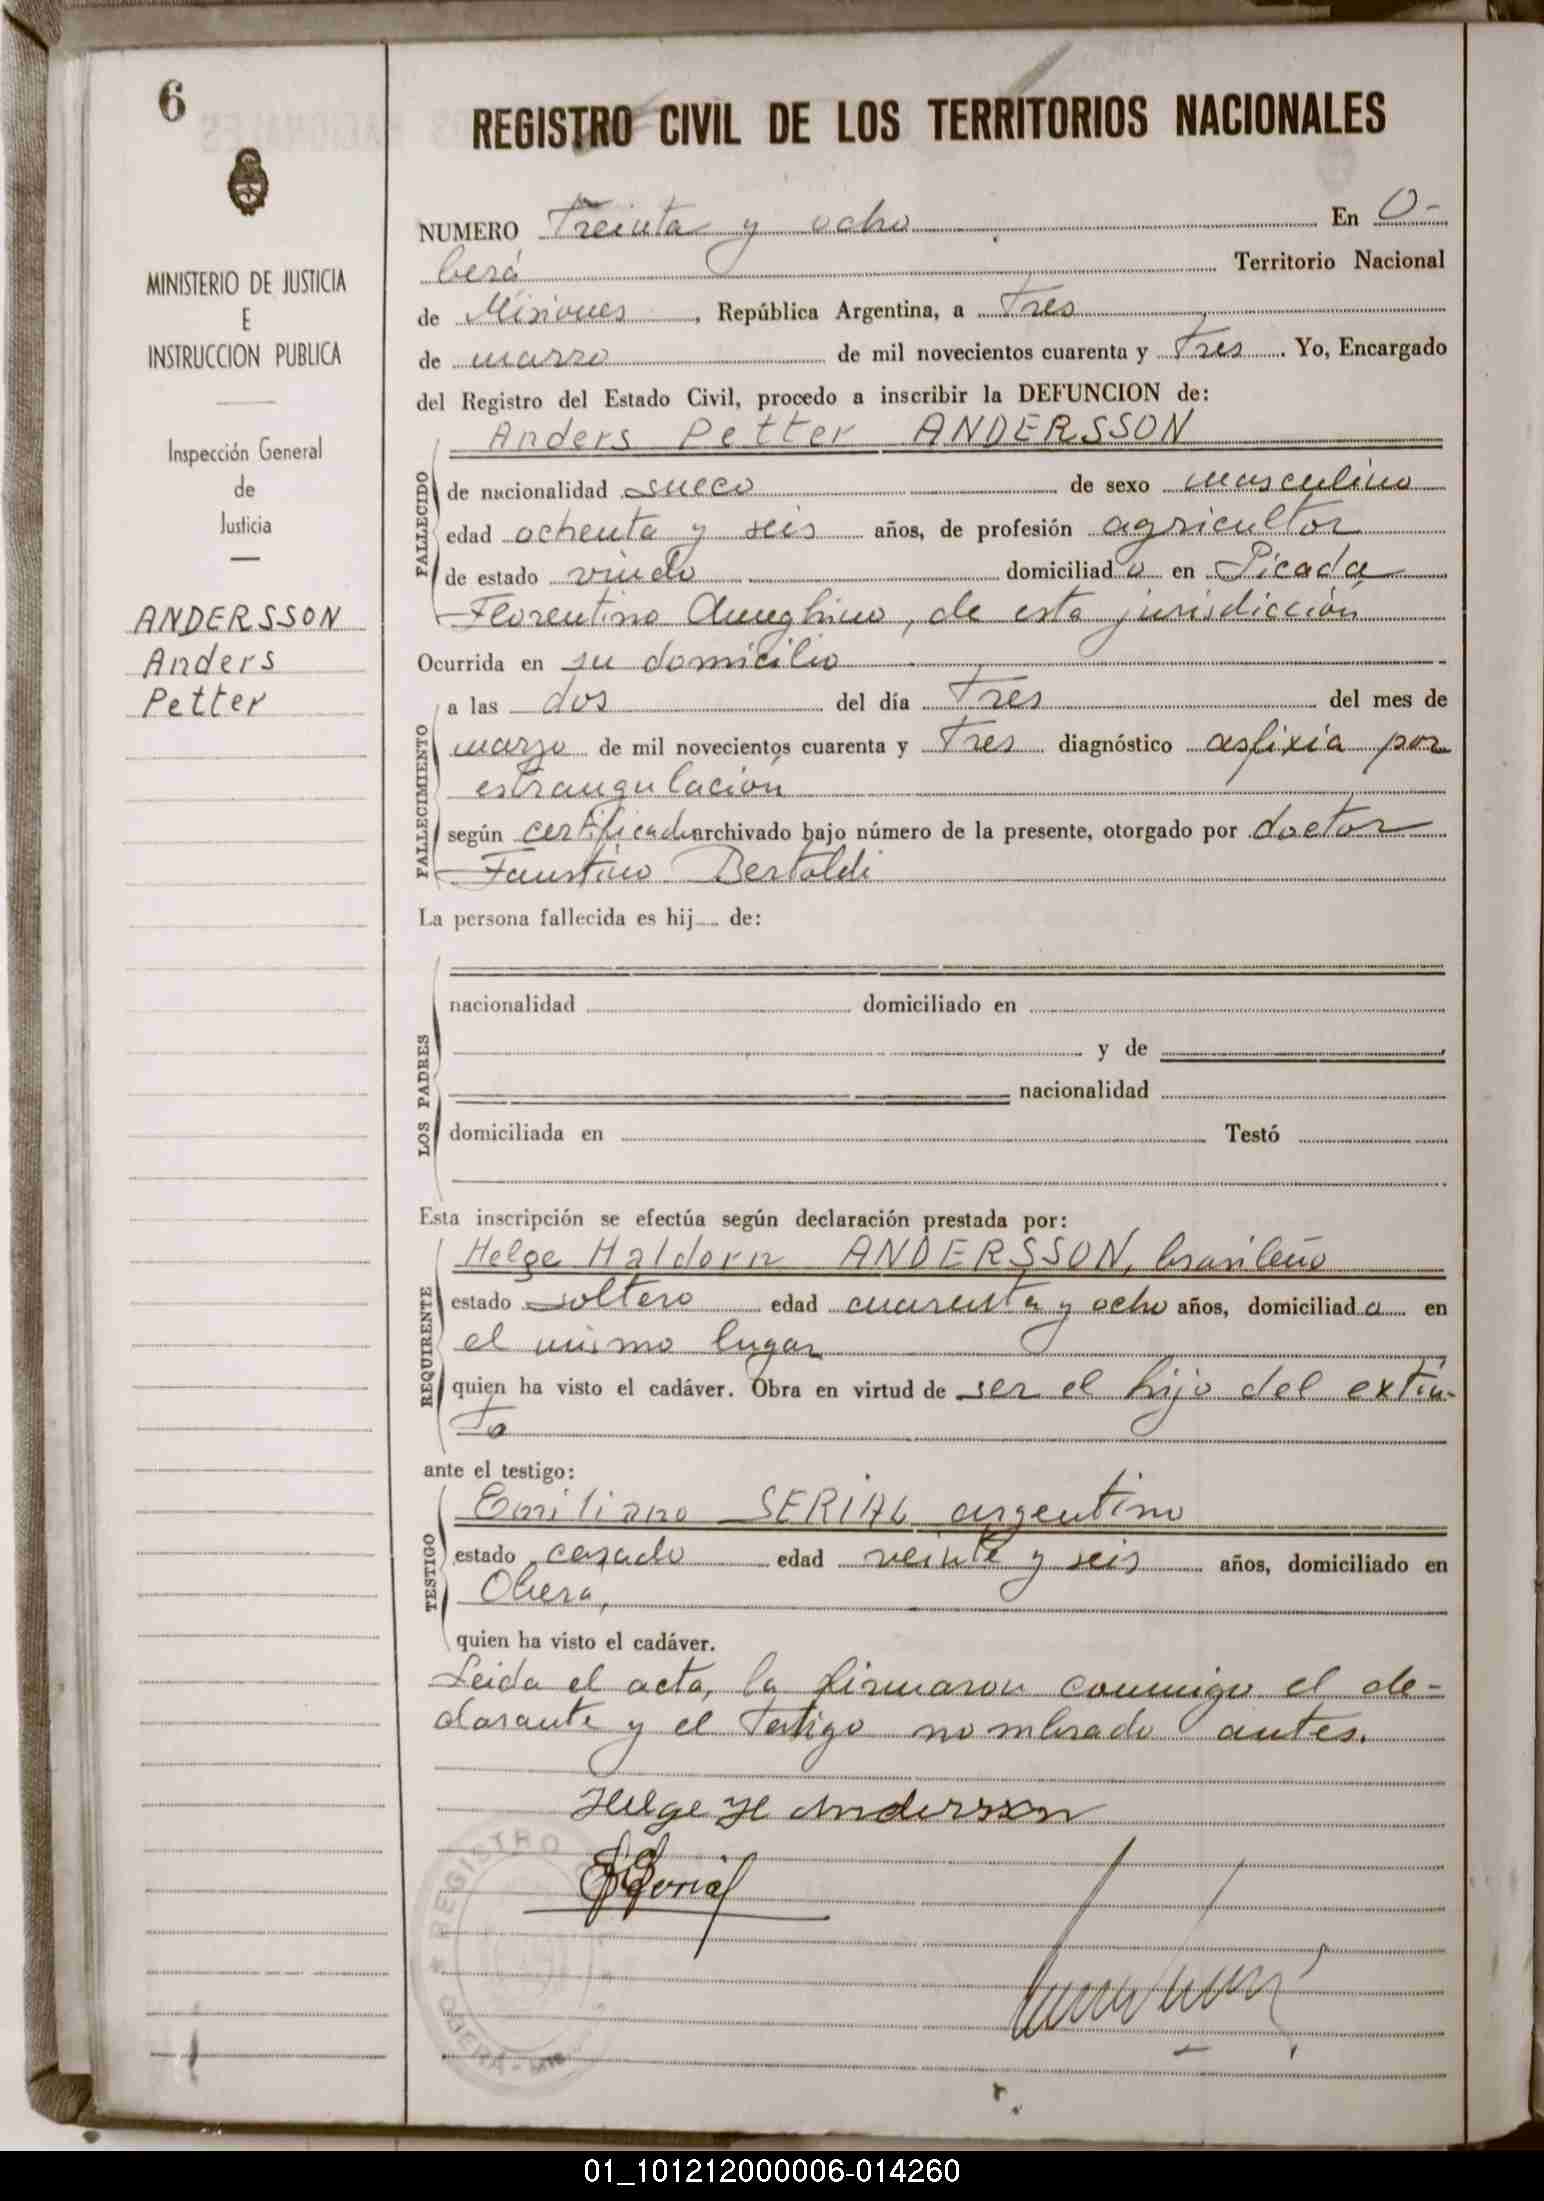 6
MINISTERIO DE JUSTICIA
E
INSTRUCCION PUBLICA
Inspección General
de
Justicia
ANDERSSON
Anders
Petter
REGISTRO CIVIL DE LOS TERRITORIOS NACIONALES
NUMERO Treinta y ocho En O-
berá Territorio Nacional
de Misiones, República Argentina, a Tres
de marzo de mil novecientos cuarenta y Tres. Yo, Encargado
del Registro del Estado Civil, procedo a inscribir la DEFUNCION de:
Anders Petter ANDERSSON
FALLECIDO
de nacionalidad sueco de sexo masculino
edad ochenta y seis años, de profesión agricultor
de estado viudo domiciliado en Picada
Florentino Ameghino, de esta jurisdicción
Ocurrida en su domicilio
FALLECIMIENTO
a las dos del día Tres del mes de
marzo de mil novecientos cuarenta y Tres diagnóstico asfixia por
estrangulación
según certificado archivado bajo número de la presente, otorgado por doctor
Faustino Bertoldi
La persona fallecida es hij de:
LOS PADRES
nacionalidad domiciliado en
y de
nacionalidad
domiciliada en Testó
Esta inscripción se efectúa según declaración prestada por:
REQUIRENTE
Helge Haldorn ANDERSSON, brasileño
estado soltero edad cuarenta y ocho años, domiciliado en
el mismo lugar
quien ha visto el cadáver. Obra en virtud de ser el hijo del extin-
to
ante el testigo:
TESTIGO
Emiliano SERIAL argentino
estado casado edad veinte y seis años, domiciliado en
Obera,
quien ha visto el cadáver.
Leida el acta, la firmaron conmigo el de-
clarante y el Testigo nombrado antes.
Helge H Andersson
REGISTRO
OBERA - Mis.
01_101212000006-014260